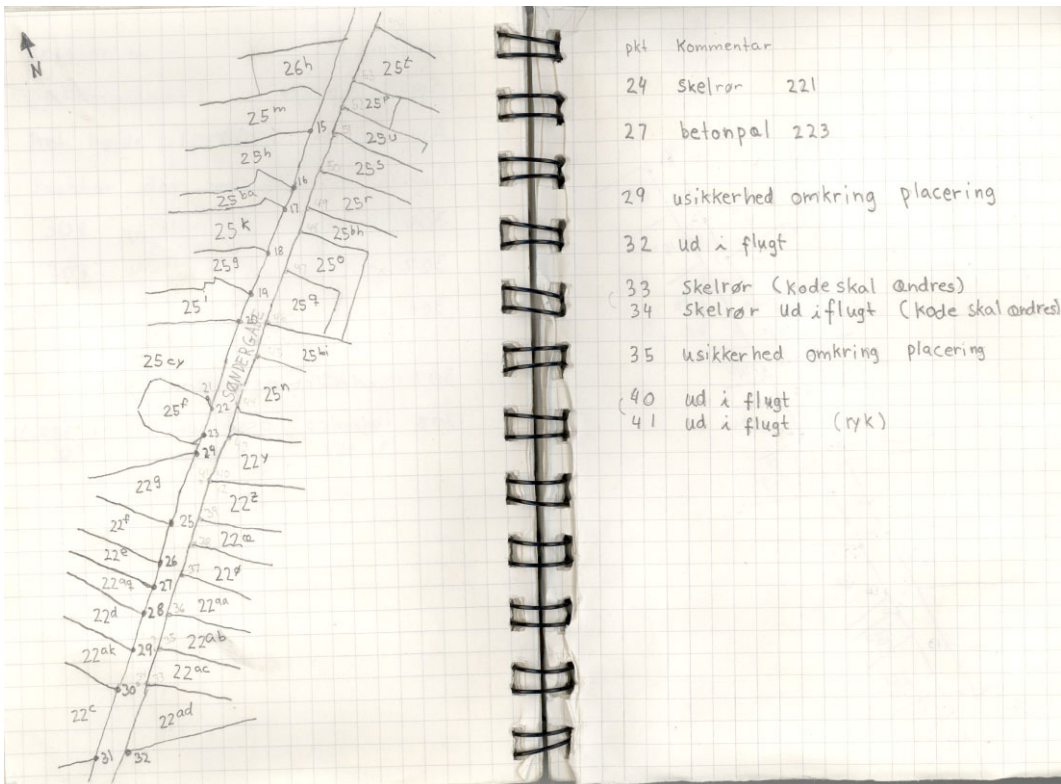 N
26h
25t
25m
25p
15
25u
25h
25s
16
25ba
17
25r
25k
25bh
18
25g
25o
19
25i
25q
20
SØNDERGADE
25bi
25cy
25n
21
25f
22
23
24
22y
22g
22z
22f
25
22æ
22e
26
22ø
22aq
27
22d
28
36
22aa
22ak
29
35
22ab
30
22ac
22c
22ad
31
32
pkt Kommentar
24 skelrør 221
27 betonpal 223
29 usikkerhed omkring placering
32 ud i flugt
33 skelrør (kode skal ændres)
34 skelrør ud i flugt (kode skal ændres)
35 usikkerhed omkring placering
40 ud i flugt
41 ud i flugt (ryk)